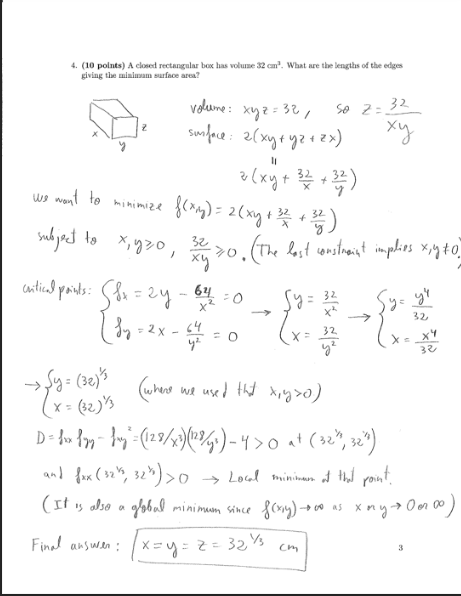 4. (10 points) A closed rectangular box has volume 32 cm³. What are the lengths of the edges
giving the minimum surface area?
x y z
volume: xyz = 32, so z = 32/xy
surface: 2(xy + yz + zx)
=
2(xy + 32/x + 32/y)
we want to minimize f(x,y) = 2(xy + 32/x + 32/y)
subject to x,y ≥ 0, 32/xy ≥ 0. (The last constraint implies x,y ≠ 0)
critical points: { fx = 2y - 64/x² = 0 → { y = 32/x² → { y = y⁴/32
{ fy = 2x - 64/y² = 0 { x = 32/y² { x = x⁴/32
→ { y = (32)^1/3 (where we used that x,y > 0)
{ x = (32)^1/3
D = fxx fyy - fxy² = (128/x³)(128/y³) - 4 > 0 at (32^1/3, 32^1/3)
and fxx (32^1/3, 32^1/3) > 0 → Local minimum at that point.
(It is also a global minimum since f(x,y) → ∞ as x or y → 0 or ∞)
Final answer: x = y = z = 32^1/3 cm
3